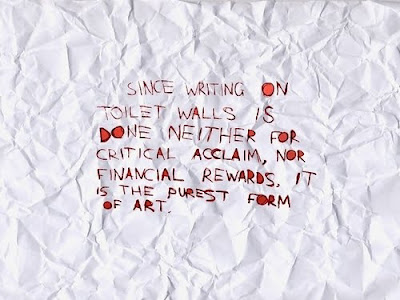 SINCE WRITING ON
TOILET WALLS IS
DONE NEITHER FOR
CRITICAL ACCLAIM, NOR
FINANCIAL REWARDS, IT
IS THE PUREST FORM
OF ART.